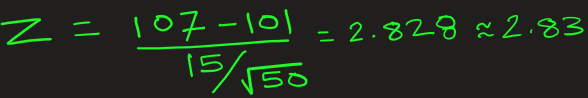 Z = (107 - 101) / (15/√50) = 2.828 ≈ 2.83